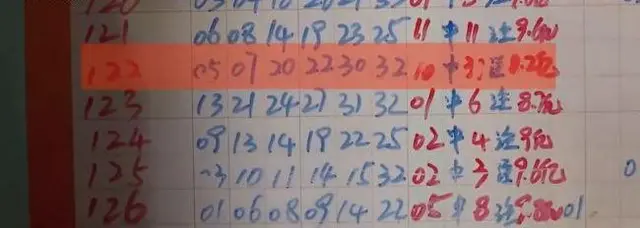 121 06 08 14 19 23 25 11 中 11 注 9.6亿
122 05 07 20 22 30 32 10 中 注 8.2亿
123 13 21 24 27 31 32 01 中 6 注 8.7亿
124 09 13 14 19 22 25 02 中 4 注 9亿
125 03 10 11 14 15 32 02 中 3 注 9.6亿 0
126 01 06 08 09 14 22 05 中 8 注 9.8亿 01